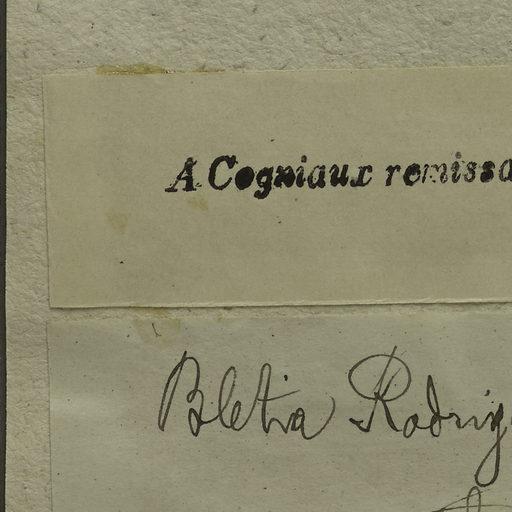 A Cogniaux remissa
Bletia Rodrig